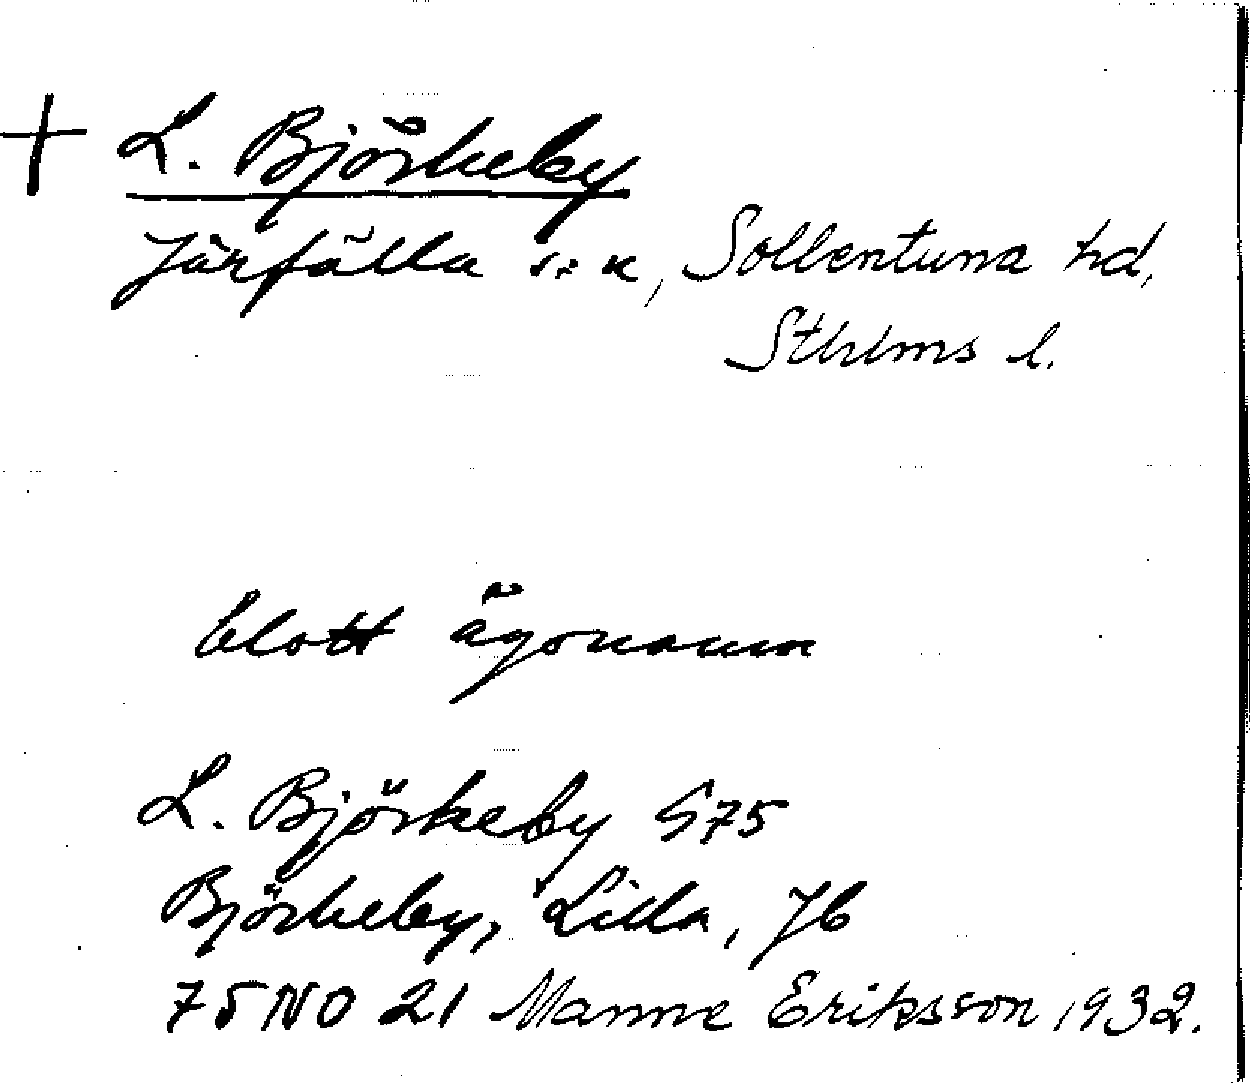 + L. Björkeby
Järfälla sn, Sollentuna hd,
Sthlms l.
blott ägonamn
L. Björkeby S75
Björkeby, Lilla, Jb
75 NO 21 Manne Eriksson 1932.